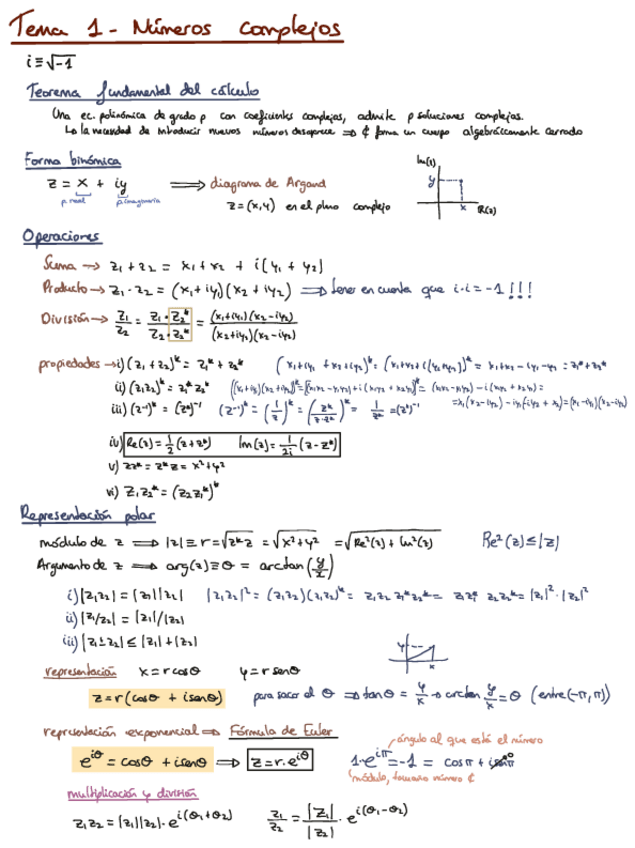 Tema 1 - Números complejos
i ≡ √-1
Teorema fundamental del cálculo
Una ec. polinómica de grado p con coeficientes complejos, admite p soluciones complejas.
La necesidad de introducir nuevos números desaparece ⟹ ₵ forma un cuerpo algebráicamente cerrado
Forma binómica
Im(z)
z = x + iy ⟹ diagrama de Argand
y
p. real p. imaginaria
z = (x,y) en el plano complejo
x R(z)
Operaciones
Suma → z₁ + z₂ = x₁ + x₂ + i(y₁ + y₂)
Producto → z₁ · z₂ = (x₁ + iy₁)(x₂ + iy₂) ⟹ tener en cuenta que i·i = -1 !!!
División → z₁/z₂ = z₁·z₂*/z₂·z₂* = (x₁+iy₁)(x₂-iy₂)/(x₂+iy₂)(x₂-iy₂)
propiedades → i) (z₁+z₂)* = z₁* + z₂*
ii) (z₁z₂)* = z₁* z₂*
iii) (z⁻¹)* = (z*)⁻¹ (z⁻¹)* = (1/z)* = (z*/z·z*)* = 1/z* = (z*)⁻¹
iv) Re(z) = 1/2 (z+z*) Im(z) = 1/2i (z-z*)
v) zz* = z*z = x²+y²
vi) z₁z₂* = (z₂z₁*)*
Representación polar
módulo de z ⟹ |z| ≡ r = √z*z = √x²+y² = √Re²(z) + Im²(z) Re²(z) ≤ |z|
Argumento de z ⟹ arg(z) ≡ θ = arctan(y/x)
i) |z₁z₂| = |z₁||z₂| |z₁z₂|² = (z₁z₂)(z₁z₂)* = z₁z₂ z₁*z₂* = z₁z₁* z₂z₂* = |z₁|²·|z₂|²
ii) |z₁/z₂| = |z₁|/|z₂|
iii) |z₁±z₂| ≤ |z₁|+|z₂|
y
x
representación x = r cosθ y = r senθ
z = r(cosθ + isenθ) para sacar el θ ⟹ tanθ = y/x → arctan y/x = θ (entre(-π,π))
representación exponencial ⟹ Fórmula de Euler
ángulo al que está el número
e^{iθ} = cosθ + isenθ ⟹ z = r·e^{iθ} 1·e^{iπ} = -1 = cosπ + isenπ 0
módulo, número ₵
multiplicación y división
z₁z₂ = |z₁||z₂|·e^{i(θ₁+θ₂)} z₁/z₂ = |z₁|/|z₂| · e^{i(θ₁-θ₂)}